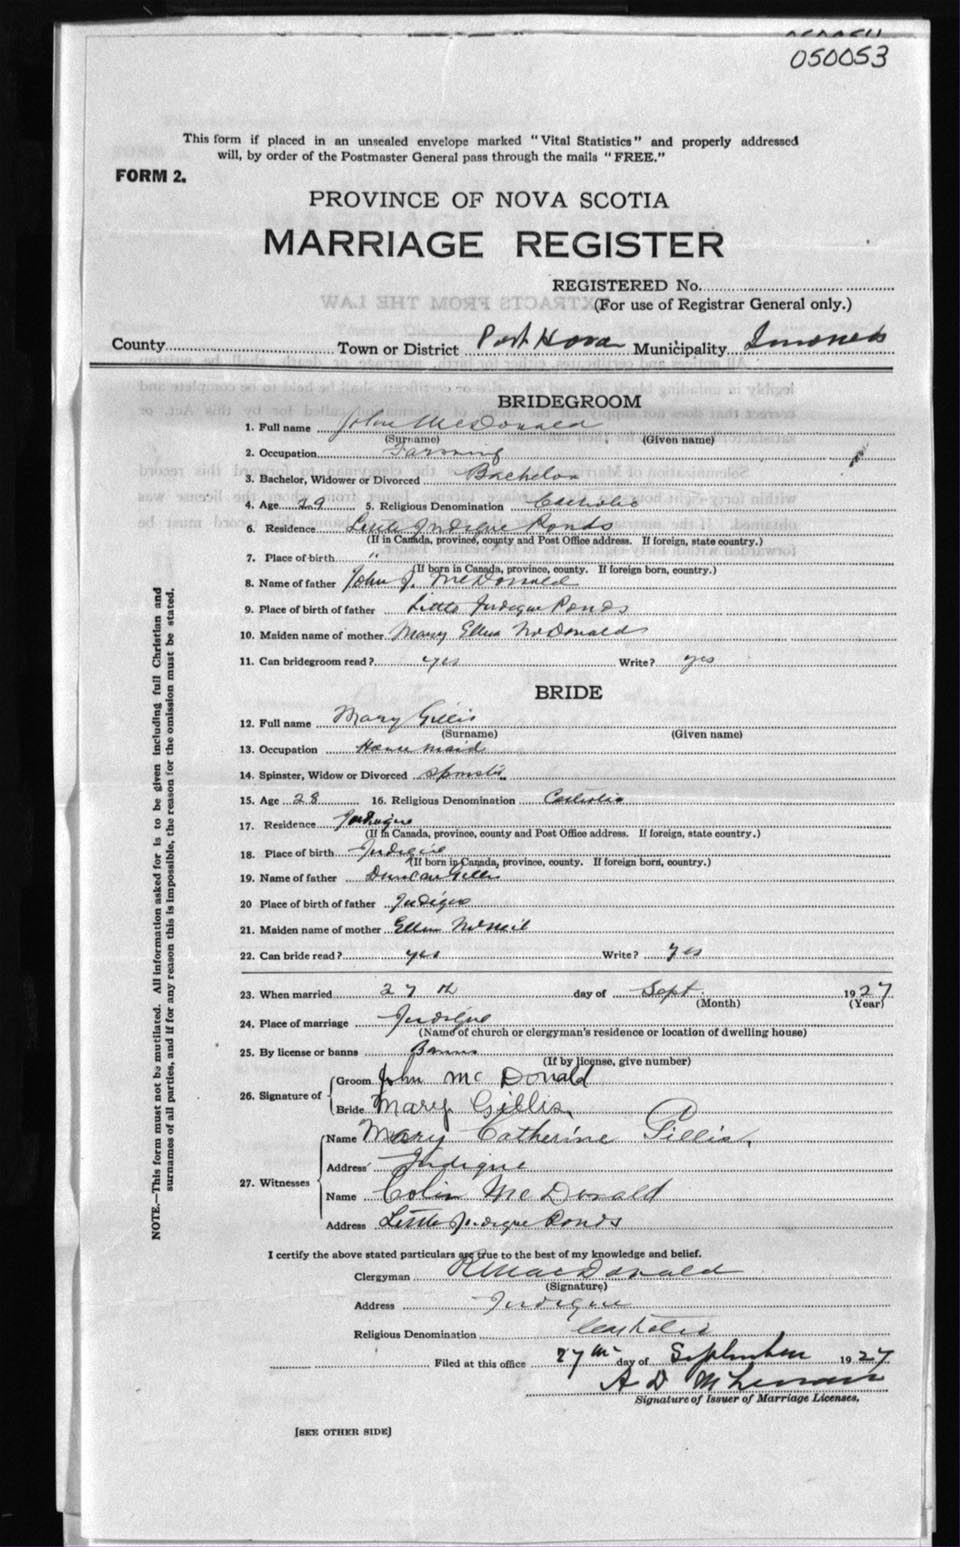 050053
This form if placed in an unsealed envelope marked "Vital Statistics" and properly addressed
will, by order of the Postmaster General pass through the mails "FREE."
FORM 2.
PROVINCE OF NOVA SCOTIA
MARRIAGE REGISTER
REGISTERED No.
(For use of Registrar General only.)
County Town or District Port Hood Municipality Inverness
BRIDEGROOM
1. Full name John McDonald
(Surname) (Given name)
2. Occupation Farming
3. Bachelor, Widower or Divorced Bachelor
4. Age 29 5. Religious Denomination Catholic
6. Residence Little Judique Ponds
(If in Canada, province, county and Post Office address. If foreign, state country.)
7. Place of birth "
(If born in Canada, province, county. If foreign born, country.)
8. Name of father John J. McDonald
9. Place of birth of father Little Judique Ponds
10. Maiden name of mother Mary Ellen McDonald
11. Can bridegroom read? yes Write? yes
BRIDE
12. Full name Mary Gillis
(Surname) (Given name)
13. Occupation House maid
14. Spinster, Widow or Divorced Spinster
15. Age 28 16. Religious Denomination Catholic
17. Residence Judique
(If in Canada, province, county and Post Office address. If foreign, state country.)
18. Place of birth Judique
(If born in Canada, province, county. If foreign born, country.)
19. Name of father Duncan Gillis
20 Place of birth of father Judique
21. Maiden name of mother Ellen McNeil
22. Can bride read? yes Write? yes
23. When married 27th day of Sept. 1927
(Month) (Year)
24. Place of marriage Judique
(Name of church or clergyman's residence or location of dwelling house)
25. By license or banns Banns
(If by license, give number)
26. Signature of
Groom John McDonald
Bride Mary Gillis
27. Witnesses
Name Mary Catherine Gillis,
Address Judique
Name Colin McDonald
Address Little Judique Ponds
I certify the above stated particulars are true to the best of my knowledge and belief.
Clergyman R MacDonald
(Signature)
Address Judique
Religious Denomination Catholic
Filed at this office 27th day of September 1927
A D
Signature of Issuer of Marriage Licenses.
[SEE OTHER SIDE]
NOTE.—This form must not be mutilated. All information asked for is to be given including full Christian and
surnames of all parties, and if for any reason this is impossible, the reason for the omission must be stated.